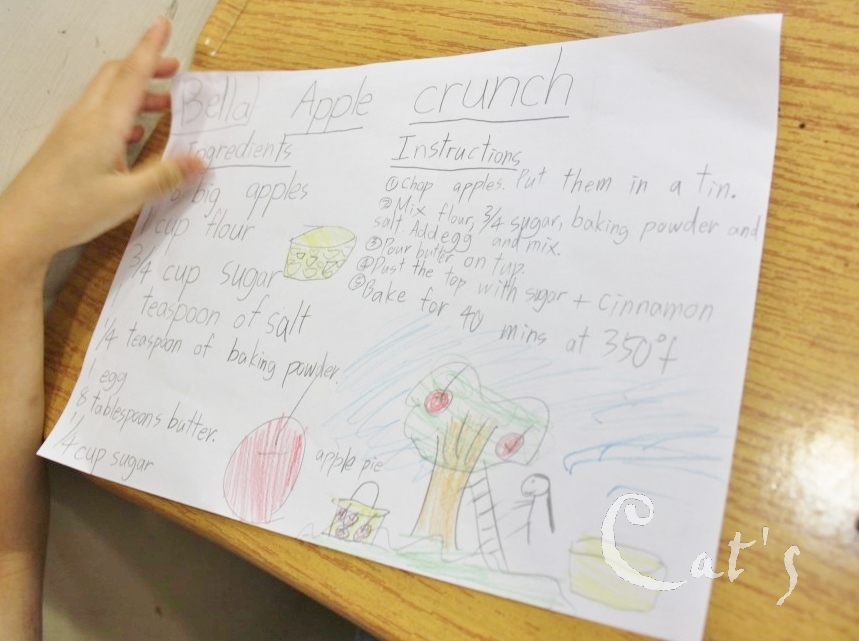 Bella Apple crunch
Ingredients
big apples
1 cup flour
3/4 cup sugar
teaspoon of salt
1/4 teaspoon of baking powder.
1 egg
8 tablespoons butter.
1/4 cup sugar
apple pie
Instructions
① Chop apples. Put them in a tin.
② Mix flour, 3/4 sugar, baking powder and
salt Add egg and mix.
③ Pour butter on tup.
④ Dust the top with sugar + cinnamon
⑤ Bake for 40 mins at 350°f
Cat's